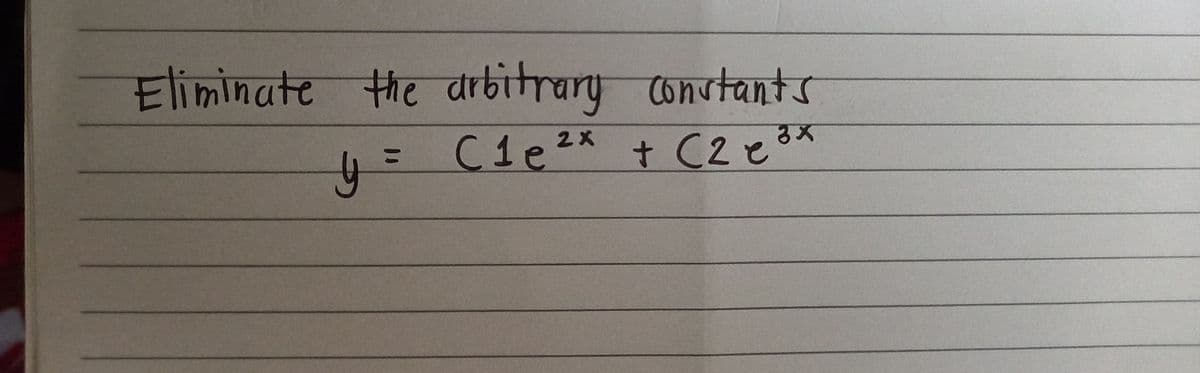 Eliminate the arbitrary constants
y = C1e²ˣ + C2e³ˣ